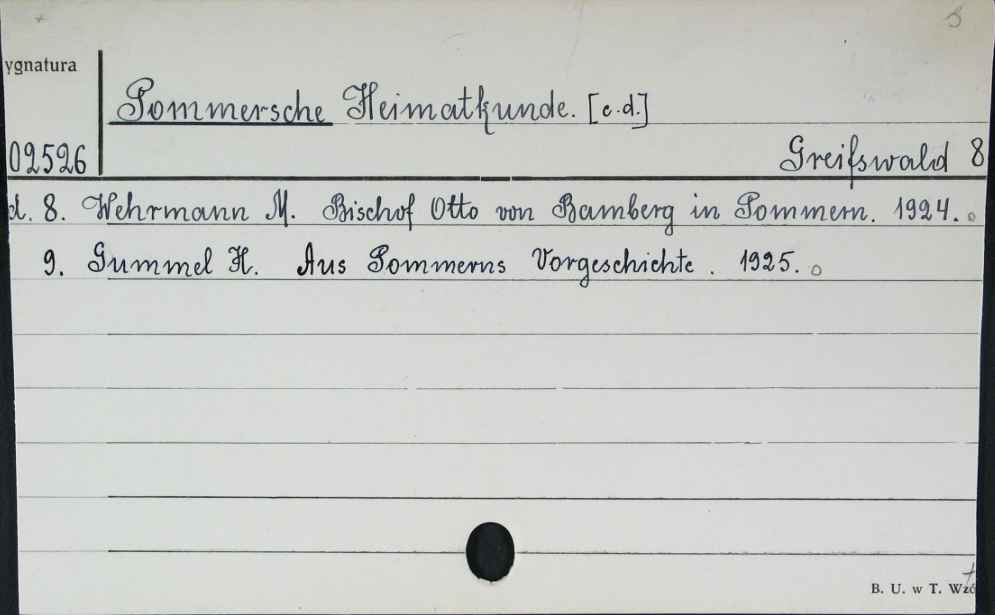 3
ygnatura
Pommersche Heimatkunde. [c.d.]
02526
Greifswald 8
d. 8. Wehrmann M. Bischof Otto von Bamberg in Pommern. 1924.
9. Gummel H. Aus Pommerns Vorgeschichte. 1925.
B. U. w T. Wzó